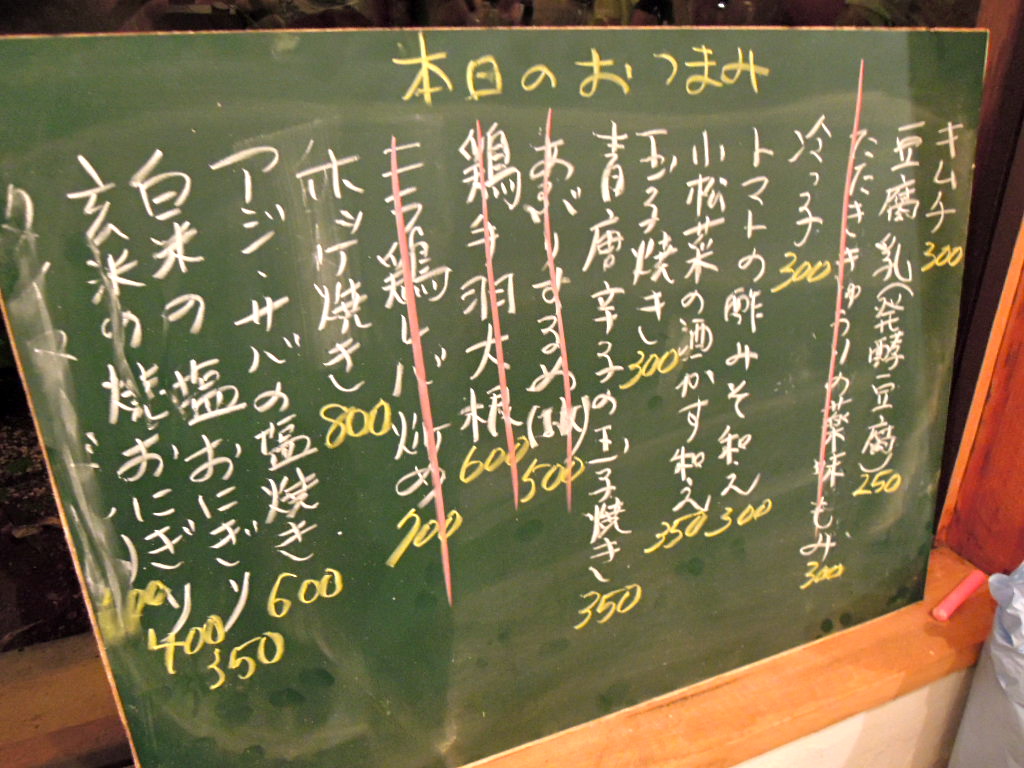 本日のおつまみ
キムチ 300
豆腐乳(発酵豆腐) 250
たたききゅうりの薬味もみ 300
冷やっこ 300
トマトの酢みそ和え 300
小松菜の酒かす和え 350
玉子焼き 300
青唐辛子の玉子焼き 350
あぶりするめ 500
鶏手羽大根 600
ニラ鶏レバ炒め 700
ホッケ焼き 800
アジ・サバの塩焼き 600
白米の塩おにぎり 350
玄米の焼おにぎり 400